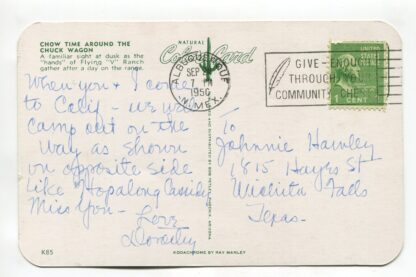 CHOW TIME AROUND THE
CHUCK WAGON
A familiar sight at dusk as the
"hands" of Flying "V" Ranch
gather after a day on the range.
NATURAL
Color Card
ALBUQUERQUE
SEP
7
1950
N.MEX.
GIVE-ENOUGH
THROUGH YOUR
COMMUNITY CHEST
CENT
When you & I come
to Calif - we will
camp out on the
way as shown
on opposite side
Like "Hopalong Cassidy"
Miss You -
Love
Dorothy
To
Johnnie Hawley
1815 Hayes St
Wichita Falls
Texas.
K85
KODACHROME BY RAY MANLEY